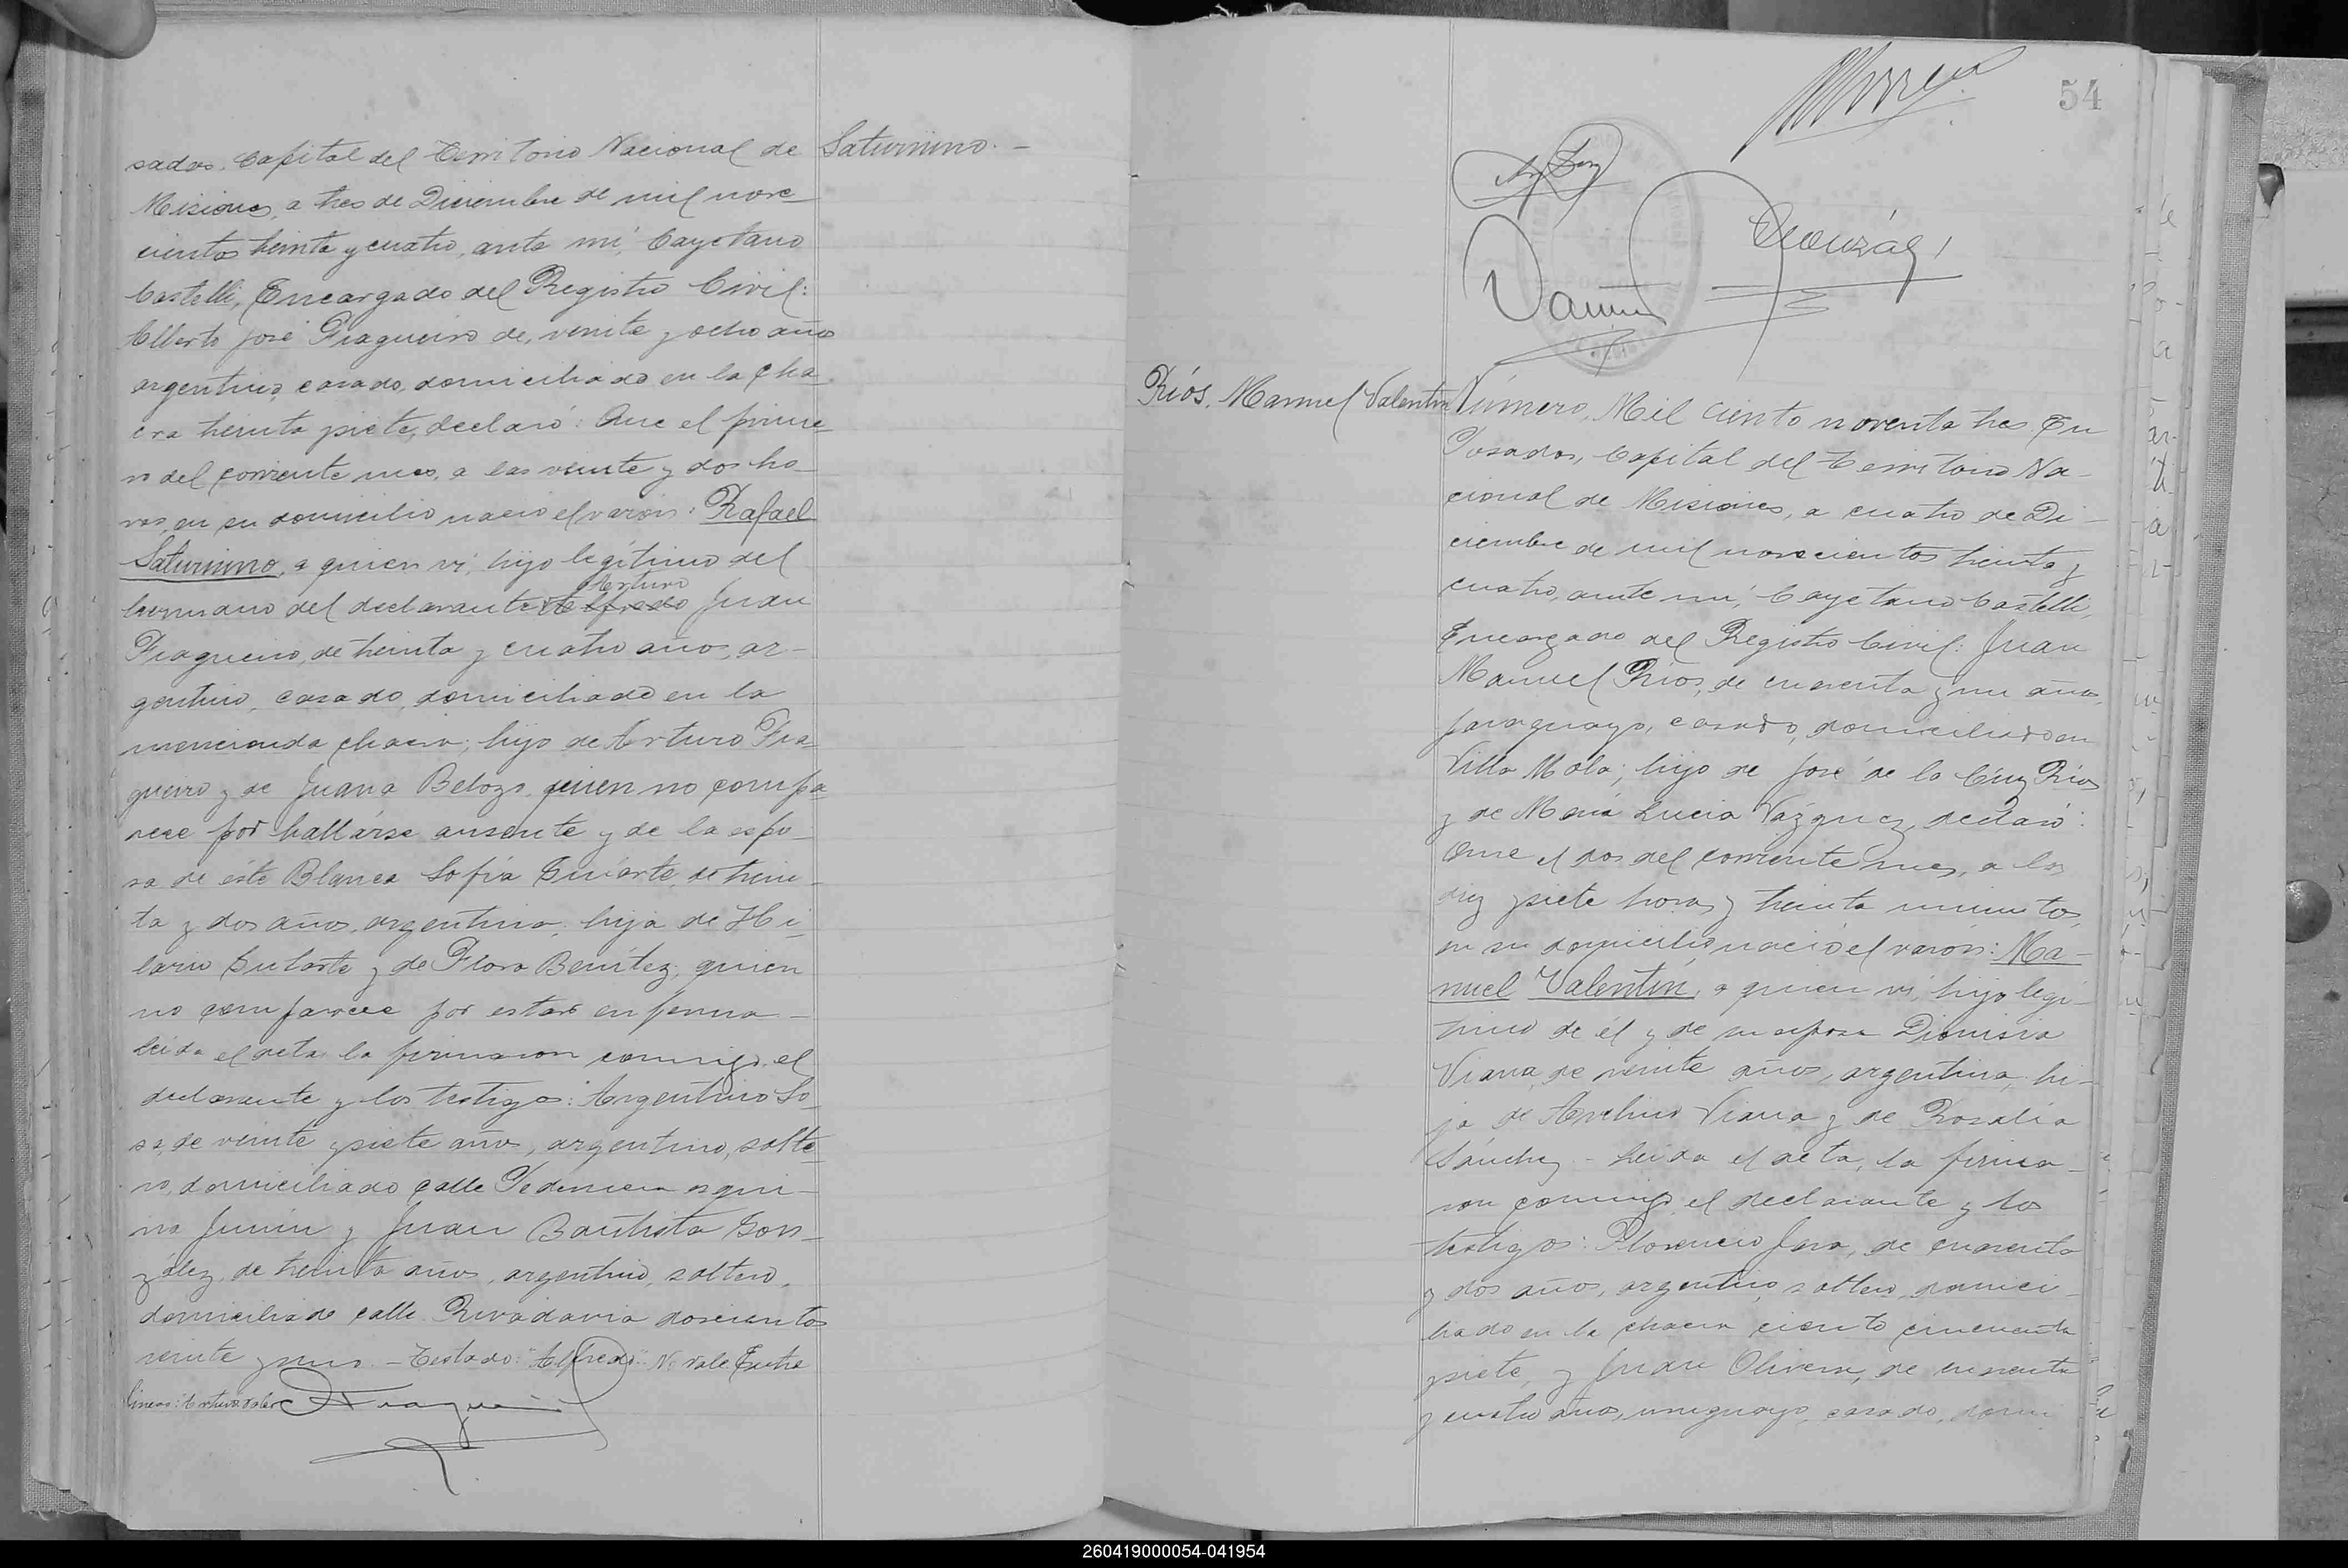 Saturnino.-
sadas, Capital del Territorio Nacional de
Misiones, a tres de Diciembre de mil nove
cientos treinta y cuatro, ante mí, Cayetano
Castelli, Encargado del Registro Civil:
Alberto José Fragueiro de, veinte y ocho años
argentino, casado, domiciliado en la cha
cra treinta y siete, declaró: Que el prime
ro del corriente mes, a las veinte y dos ho-
ras, en su domicilio nació el varón: Rafael
Saturnino, a quien ví, hijo legítimo del
Arturo
hermano del declarante Alfredo Juan
Fragueiro, de treinta y cuatro años, ar-
gentino, casado, domiciliado en la
mencionada chacra; hijo de Arturo Fra
gueiro y de Juana quien no compa
rece por hallarse ausente y de la espo-
sa de éste Blanca Sofía de trein-
ta y dos años, argentina, hija de Hi-
lario y de Flora Benítez, quien
no comparece por estar enferma-
Leída el acta la firmaron conmigo el
declarante y los testigos: Argentino So-
sa, de veinte y siete años, argentino, solte-
ro, domiciliado calle esqui-
na Junín y Juan Bautista Gon-
zález, de treinta años, argentino, soltero,
domiciliado calle Rivadavia doscientos
veinte y uno.- Testado: "Alfredo" No vale Entre
líneas: Arturo Vale
54
González
Ríos, Manuel Valentín
Número, Mil ciento noventa tres. En
Posadas, Capital del Territorio Na-
cional de Misiones, a cuatro de Di-
ciembre de mil novecientos treinta y
cuatro, ante mí, Cayetano Castelli,
Encargado del Registro Civil: Juan
Manuel Ríos, de cuarenta y un años,
paraguayo, casado, domiciliado en
Villa Mola; hijo de José de la Cruz Ríos
y de María Lucia Vázquez, declaró:
Que el dos del corriente mes, a las
diez y siete horas y treinta minutos,
en su domicilio, nació el varón: Ma-
nuel Valentín, a quien ví, hijo legí-
timo de él y de su esposa Dionisia
Viana, de veinte años, argentina, hi-
ja de Avelino Viana y de Rosalía
Sánchez.- Leída el acta, la firma-
ron conmigo, el declarante y los
testigos: Florencio Jara, de cuarenta
y dos años, argentino, soltero, domici-
liado en la chacra ciento cincuenta
y siete, y Juan Olivera, de cuarenta
y cuatro años, uruguayo, casado, domi
260419000054-041954